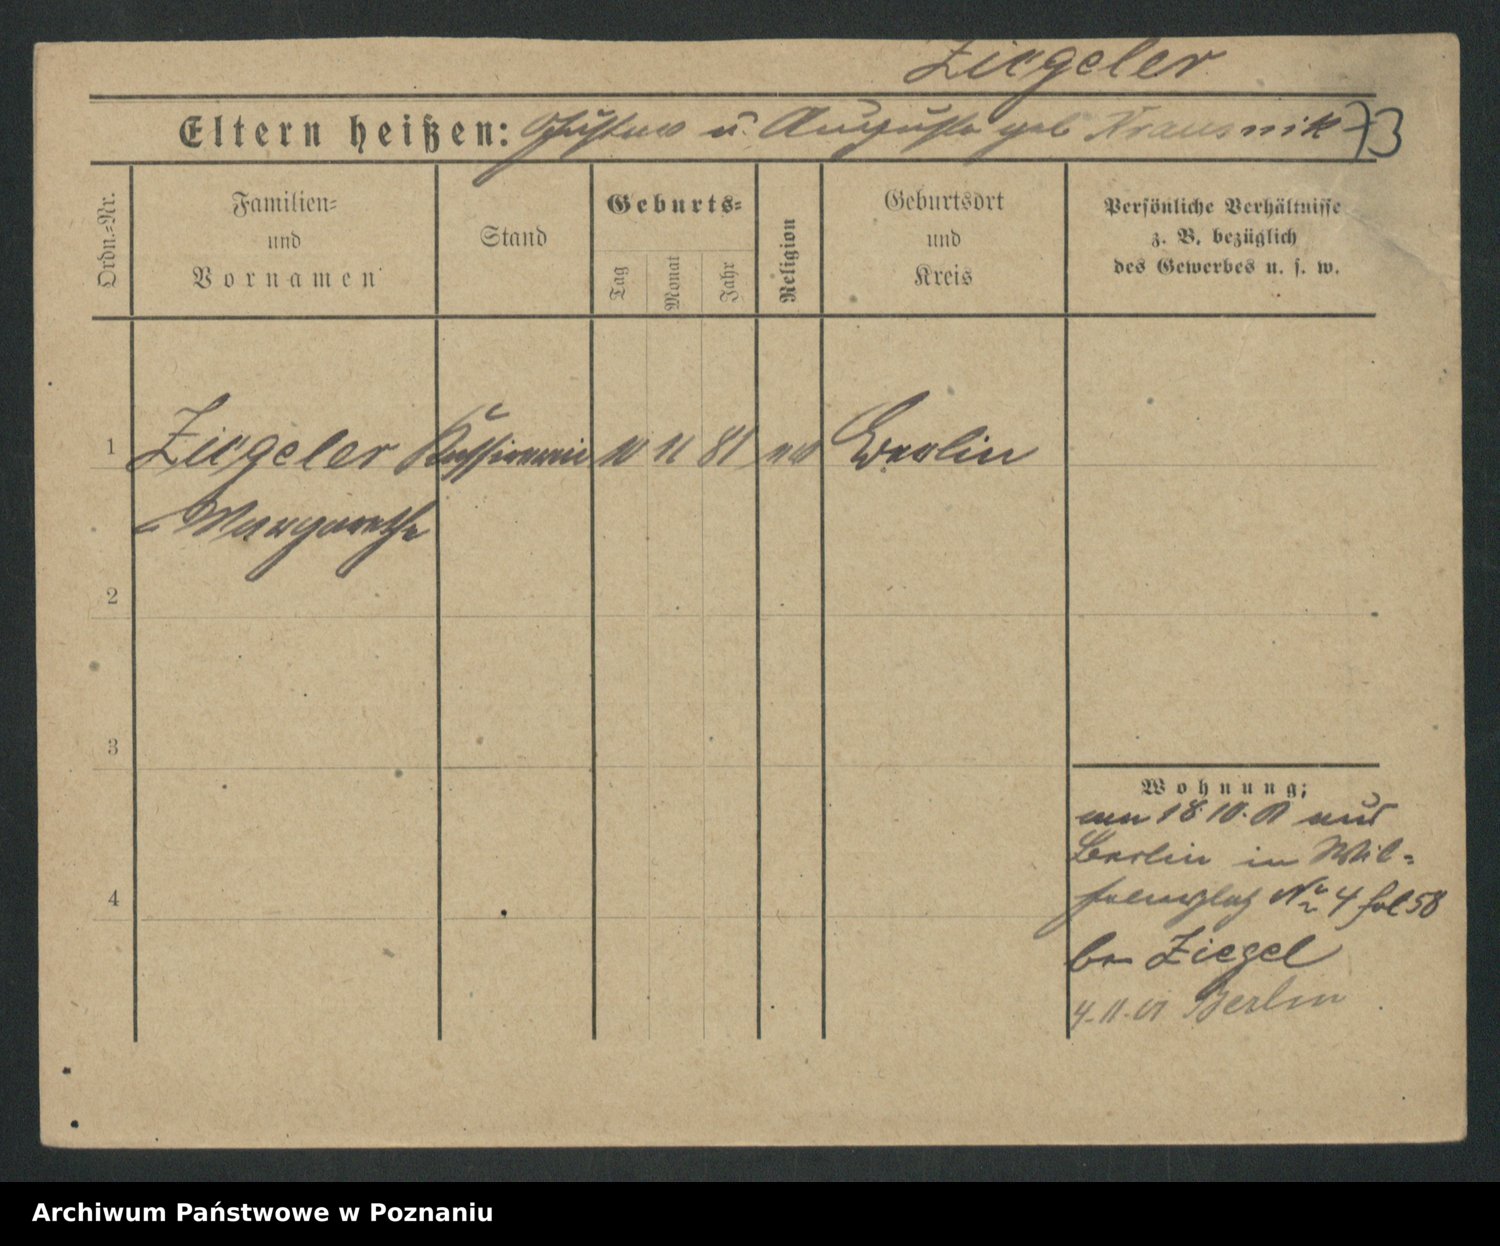 Ziegeler
Eltern heißen: Gustav u. Auguste geb Krausnik
73
Ordn.=Nr.
Familien=
und
Vornamen
Stand
Geburts=
Tag
Monat
Jahr
Religion
Geburtsort
und
Kreis
Persönliche Verhältnisse
z. B. bezüglich
des Gewerbes u. s. w.
1 Ziegeler Kassirerin 10 11 81 ev Berlin
Margarethe
2
3
4
Wohnung:
am 18.10.01 aus
Berlin in Wil=
helmplatz No 4 fol 58
bei Ziegel
4.11.01 Berlin
Archiwum Państwowe w Poznaniu